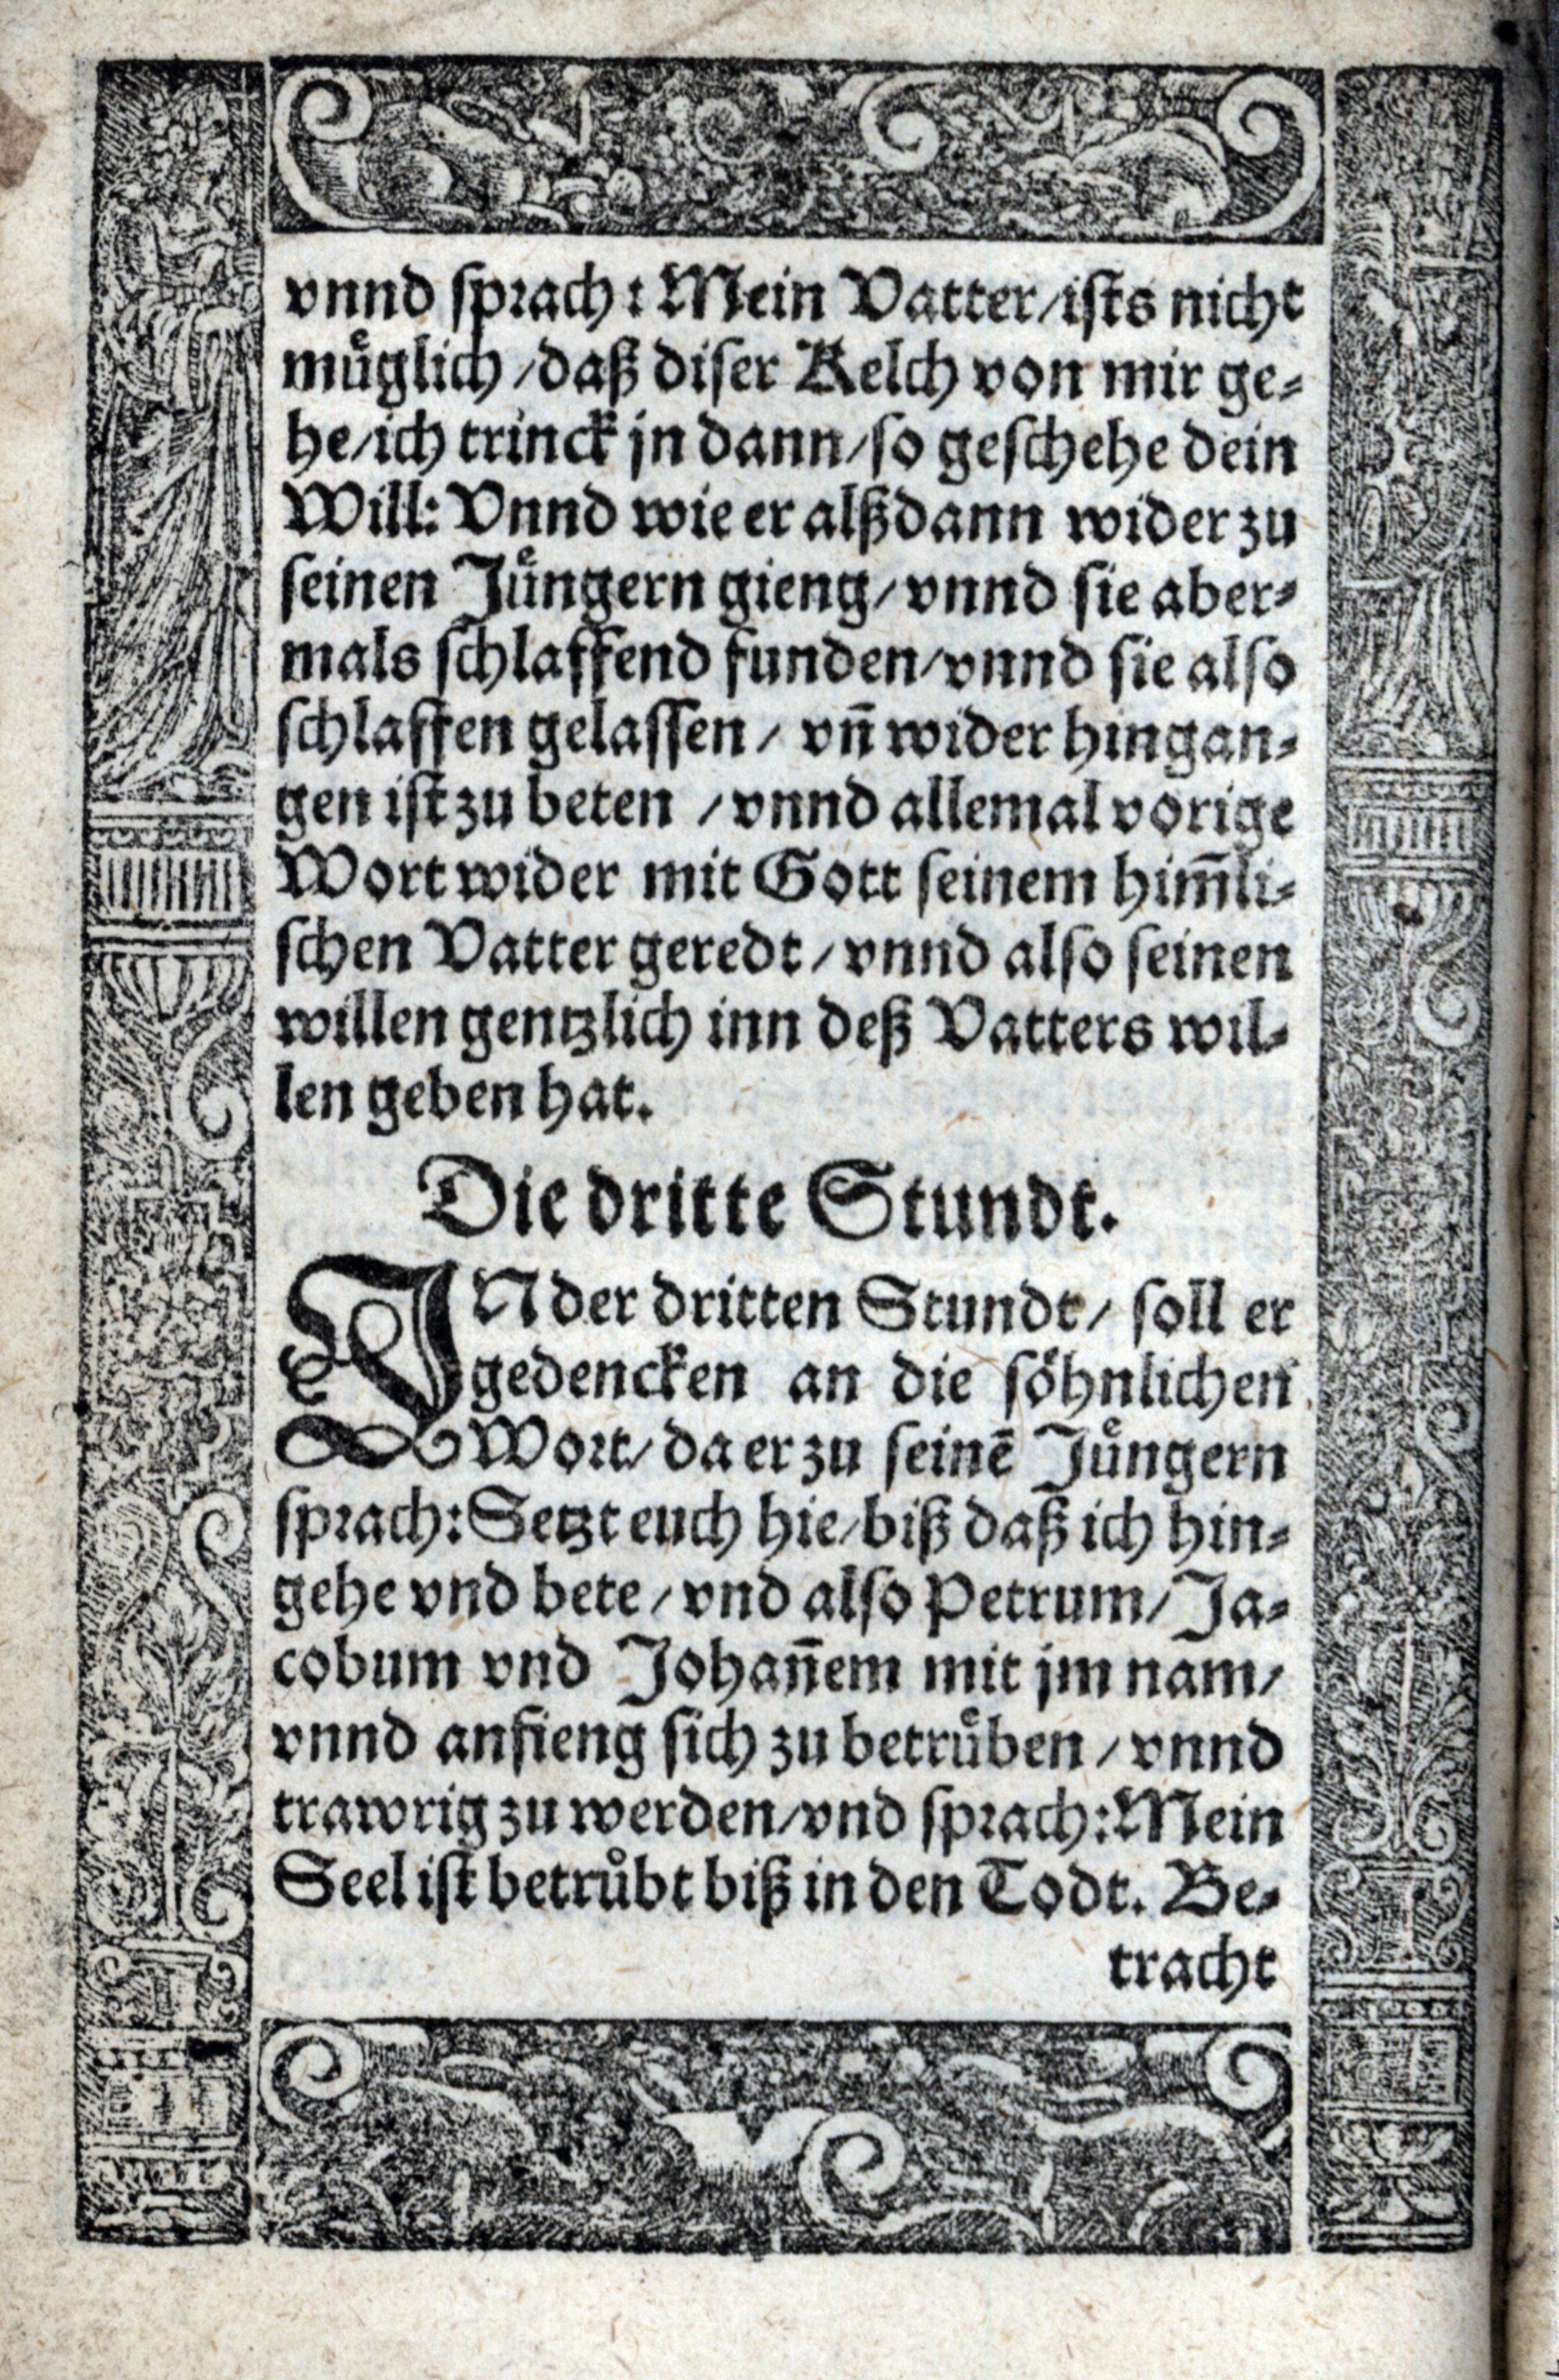 vnnd sprach: Mein Vatter/ists nicht
muͤglich/daß diser Kelch von mir ge⸗
he/ich trinck jn dann/so geschehe dein
Will: Vnnd wie er alßdann wider zu
seinen Juͤngern gieng/vnnd sie aber⸗
mals schlaffend funden/vnnd sie also
schlaffen gelassen/ vn̄ wider hingan⸗
gen ist zu beten /vnnd allemal vorige
Wort wider mit Gott seinem him̄li⸗
schen Vatter geredt/vnnd also seinen
willen gentzlich inn deß Vatters wil⸗
len geben hat.
Die dritte Stundt.
IN der dritten Stundt/ soll er
gedencken an die soͤhnlichen
Wort/da er zu seinē Juͤngern
sprach: Setzt euch hie/biß daß ich hin⸗
gehe vnd bete/vnd also Petrum/Ja⸗
cobum vnd Johan̄em mit jm nam/
vnnd anfieng sich zu betruͤben/vnnd
trawrig zu werden/vnd sprach: Mein
Seel ist betruͤbt biß in den Todt. Be⸗
tracht